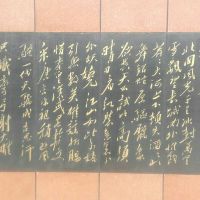 北国风光千里冰封万里
雪飘望长城内外惟余
莽莽大河上下顿失滔滔山
舞银蛇原驰腊象欲
与天公试比高须
晴日看红装素裹
分外妖娆江山如此多娇
引无数英雄竞折腰
惜秦皇汉武略输文
采唐宗宋祖稍逊风
骚一代天骄成吉思汗
只识弯弓射大雕